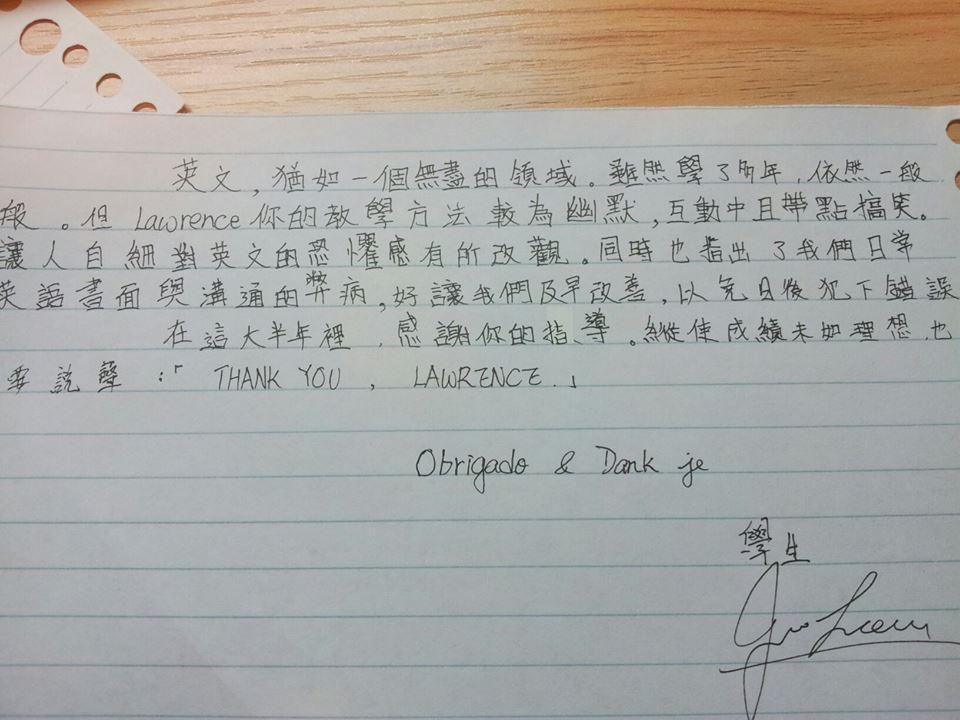 英文，猶如一個無盡的領域。雖然學了多年，依然一般
般。但Lawrence你的教學方法較為幽默，互動中且帶點搞笑。
讓人自細對英文的恐懼感有所改觀。同時也指出了我們日常
英語書面與溝通的弊病，好讓我們及早改善，以免日後犯下錯誤
在這大半年裡，感謝你的指導。縱使成績未如理想，也
要說聲：「THANK YOU, LAWRENCE.」
Obrigado & Dank je
學生